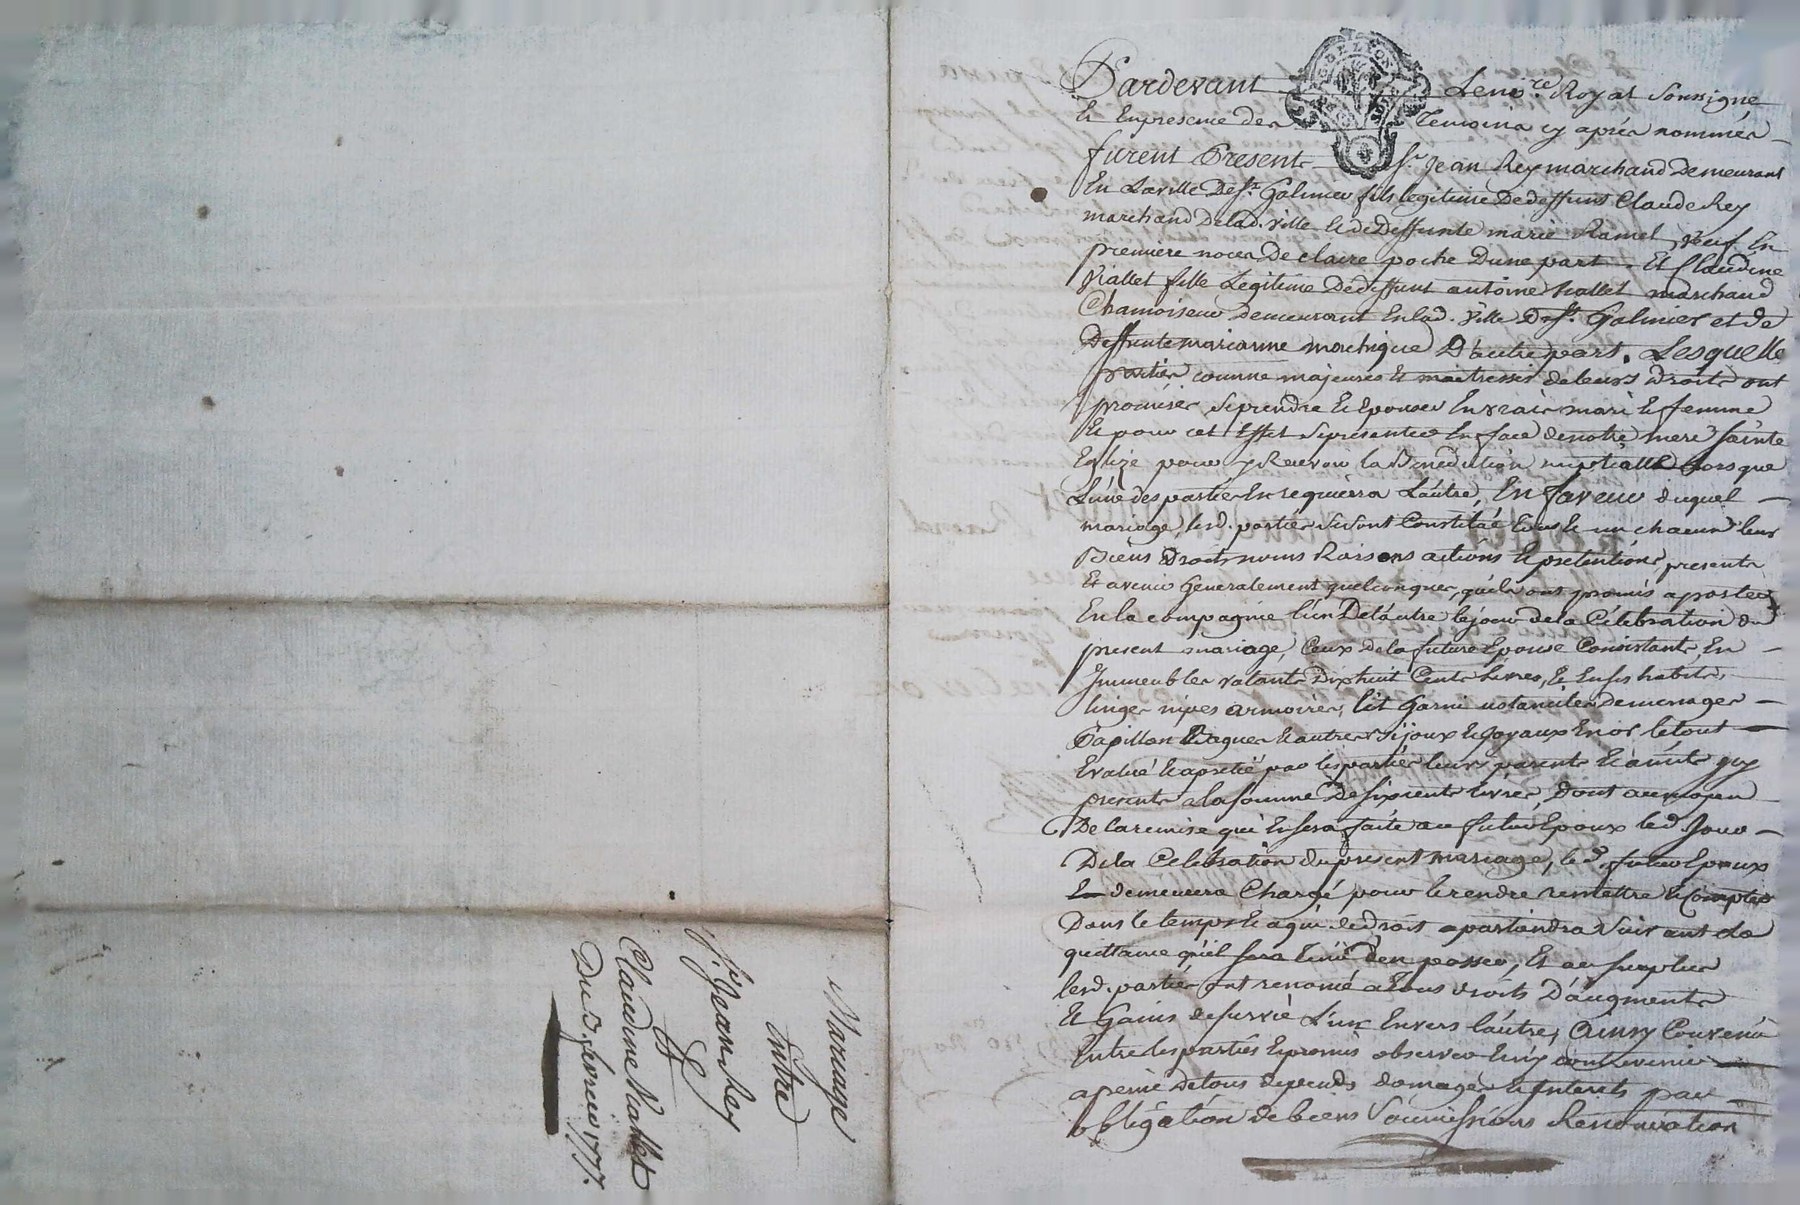 Mariage
Entre
Sr. Jean Rey
Et
Claudine Viallet
Du 3 fevrier 1777.
Pardevant Le no.re Royal soussigné
Et En presence des Temoins cy aprés nommés
furent Presents Sr. Jean Rey marchand Demeurant
En La ville De St. Galmier fils legitime De deffunts Claude Rey
marchand De lad. ville Et de Deffunte marie Ramel, veuf En
premiere noces De claire poche D'une part. Et Claudine
Viallet fille Legitime De deffunt antoine viallet marchand
Chamoiseur Demeurant En lad. Ville De St. Galmier et de
Deffunte marianne D'autre part. Lesquelles
parties comme majeures Et maitresses de leurs Droits ont
promises se prendre Et Epouser En vrais mari Et femme
Et pour cet Effet se presenter En face de notre mere Sainte
Eglize pour y Recevoir la Bénédiction nuptialle Lorsque
L'une des parties En requierra L'autre, En faveur duquel
mariage, lesd. parties se sont Constitué tous Et un chacun leurs
Biens Droits noms Raisons actions Et pretentions presents
Et avenir Generalement quelconques, qu'els ont promis aporter
En la compagnie l'un De l'autre le jour de la Célébration du
present mariage, Ceux de la future Epouse Consistants En
Immeubles valants Dixhuit Cent Livres, Et En ses habits,
linges nipes armoires, lit Garni ustanciles De menages
Papillon Bagues Et autres Bijoux Et Joyaux En or le tout
Evalué Et apretié par les parties leurs parents Et amits
presents a la somme De six cents livres, Dont au moyen
De la remise qui En sera faite au futur Epoux led. Jour
De la Celebration du present mariage, led. futur Epoux
En demeurera Chargé pour le rendre remettre Et Compter
Dans le temps Et a qui de droit apartiendra Suivant la
quittance qu'il sera tenu d'en passer, Et au surplus
lesd. parties ont renoncé a Tous droits D'augments
Et Gains de survie L'un Envers l'autre, Ainsy Convenu
Entre les parties Et promis observer Et n'y contrevenir
a peine de tous depends domages Et Interets par
obligation de biens Soumissions Renonciation